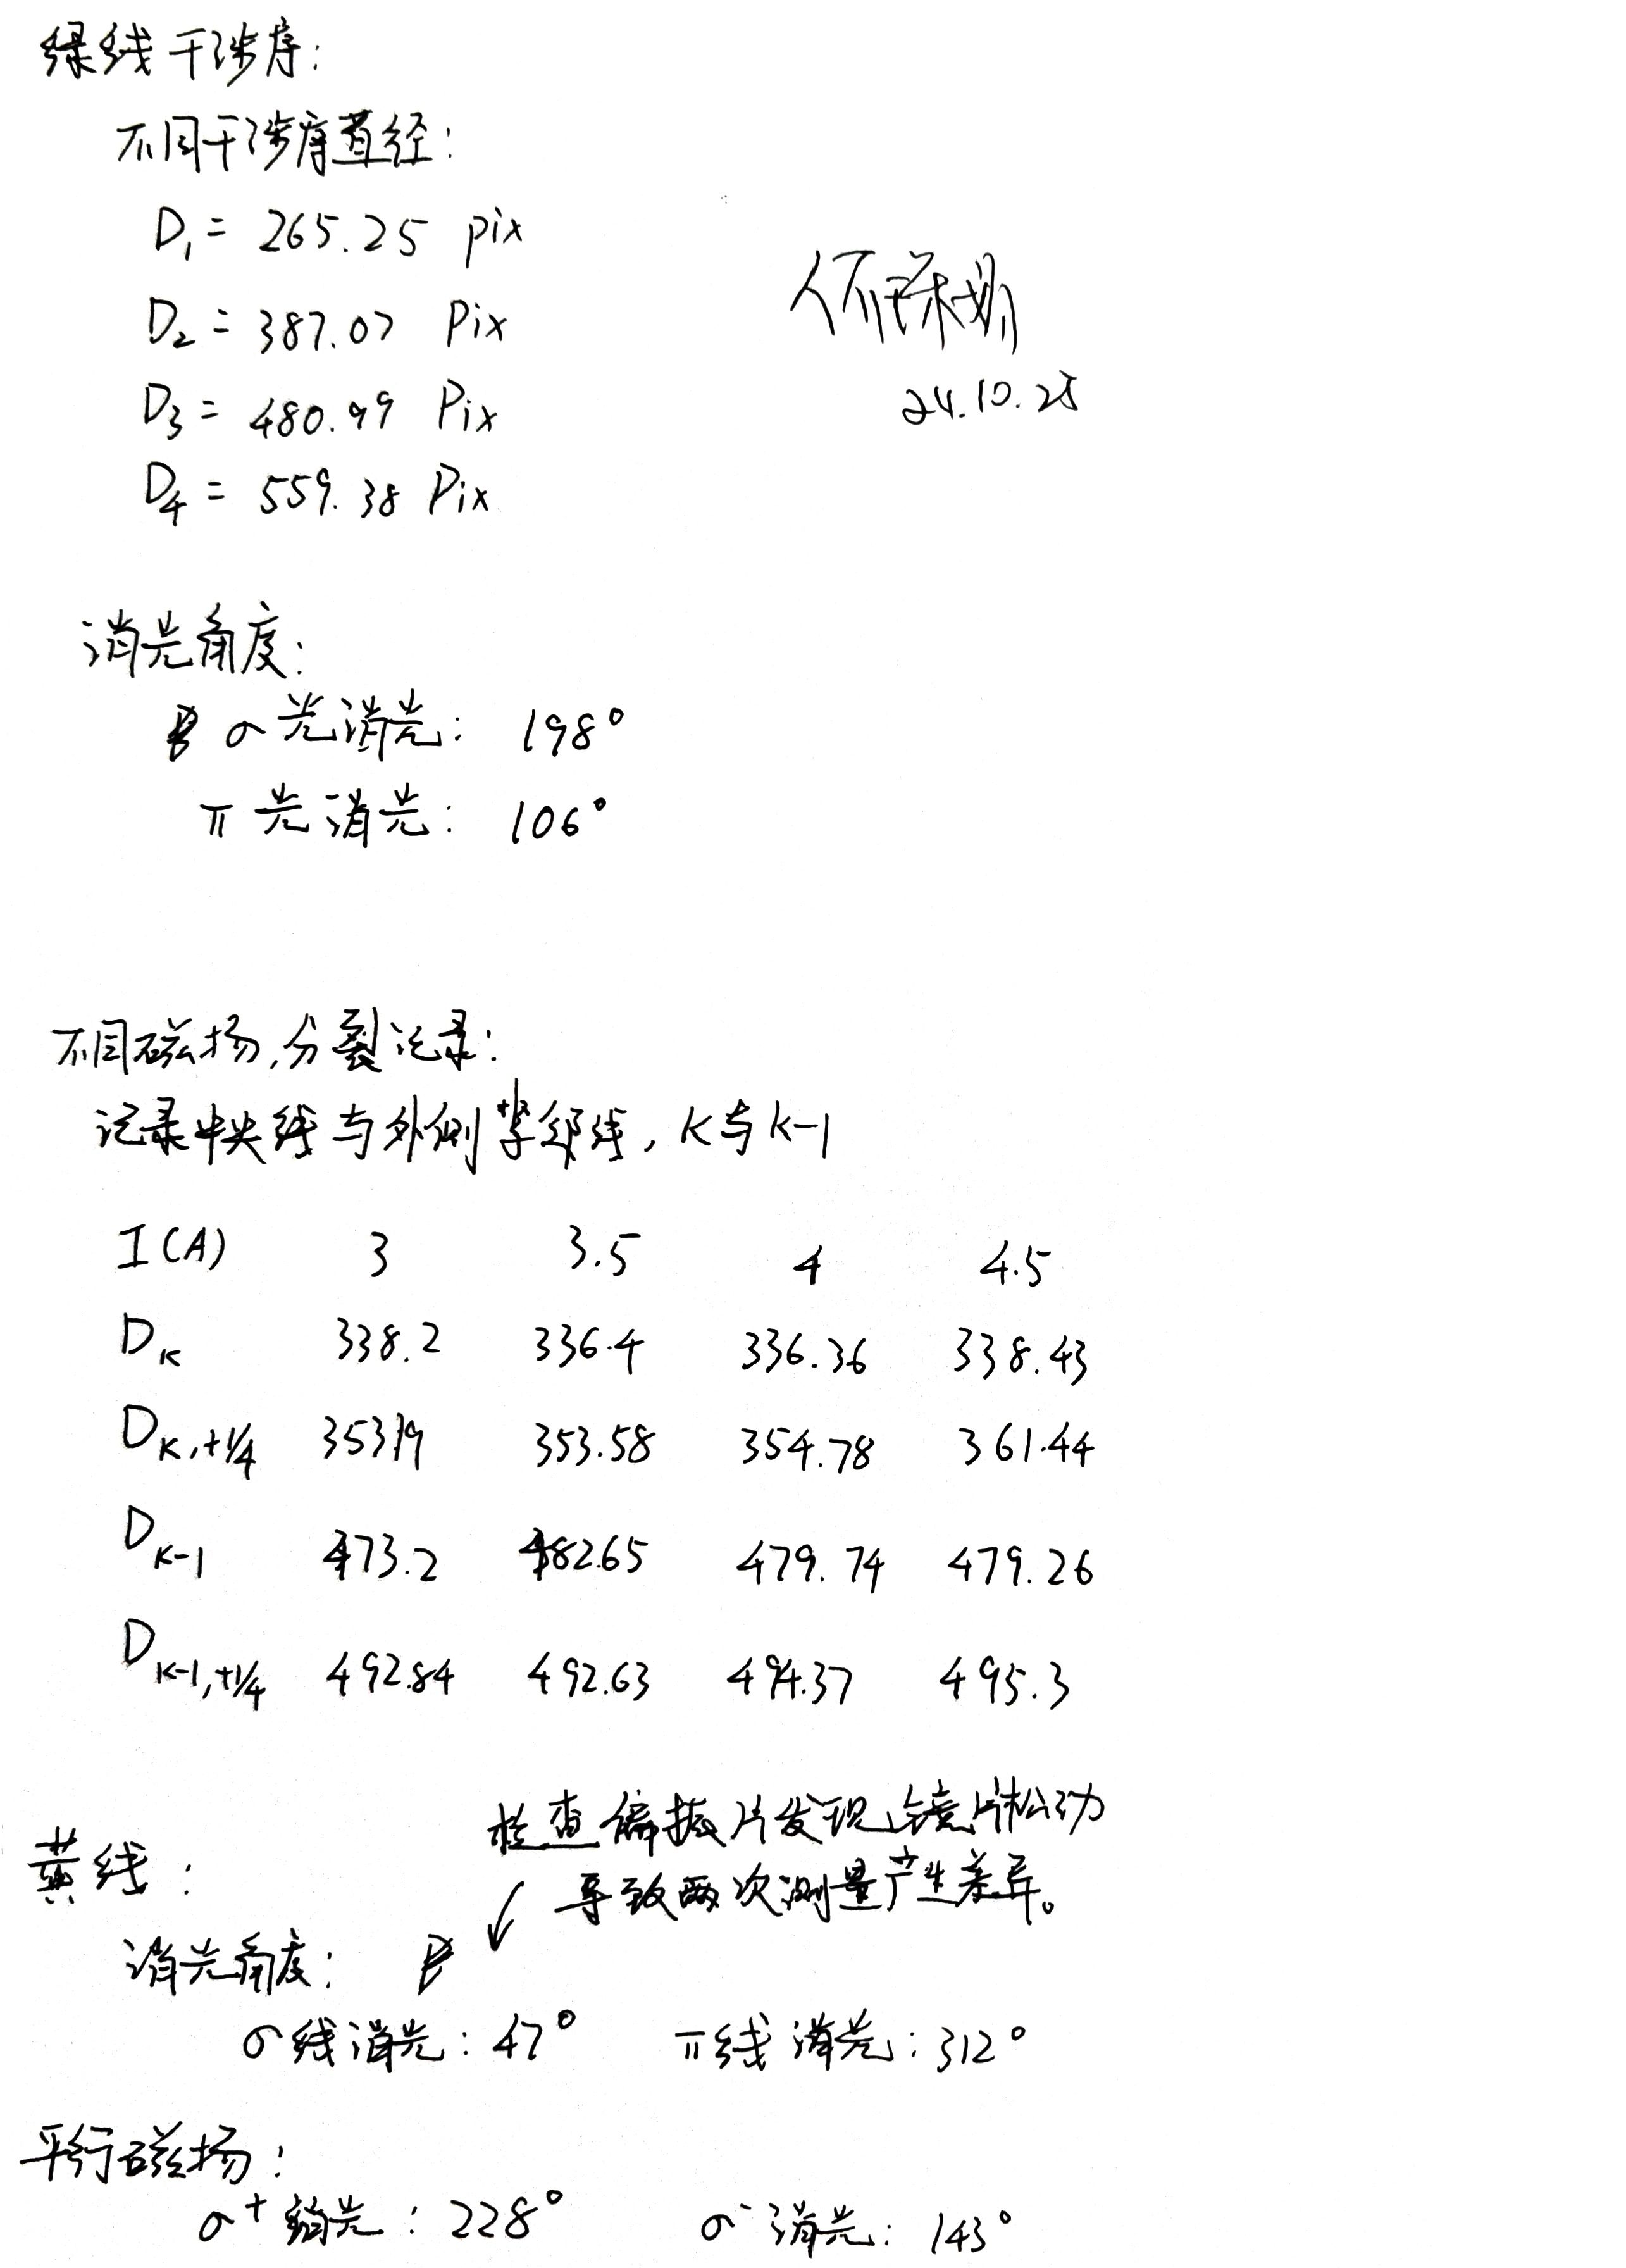 绿线干涉序:
不同干涉序直径:
D₁ = 265.25 pix
D₂ = 387.07 Pix
D₃ = 480.99 Pix
D₄ = 559.38 Pix
24.10.25
消光角度:
σ光消光: 198°
π光消光: 106°
不同磁场,分裂记录:
记录中央线与外侧紧邻线, K与K-1
I(A) 3 3.5 4 4.5
D_K 338.2 336.4 336.36 338.43
D_K,+1/4 353.19 353.58 354.78 361.44
D_K-1 473.2 482.65 479.74 479.26
D_K-1,+1/4 492.84 492.63 494.37 495.3
检查偏振片发现镜片松动
导致两次测量产生差异。
黄线:
消光角度:
σ线消光: 47° π线消光: 312°
平行磁场:
σ⁺消光: 228° σ⁻消光: 143°